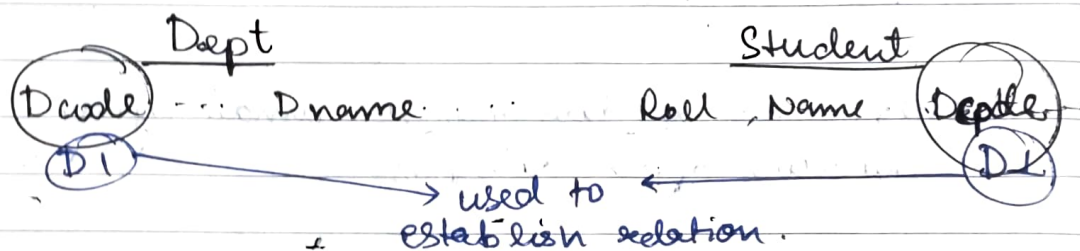 Dept Student
Dcode ... Dname .... Roll, Name
D1 D1
used to
establish relation.